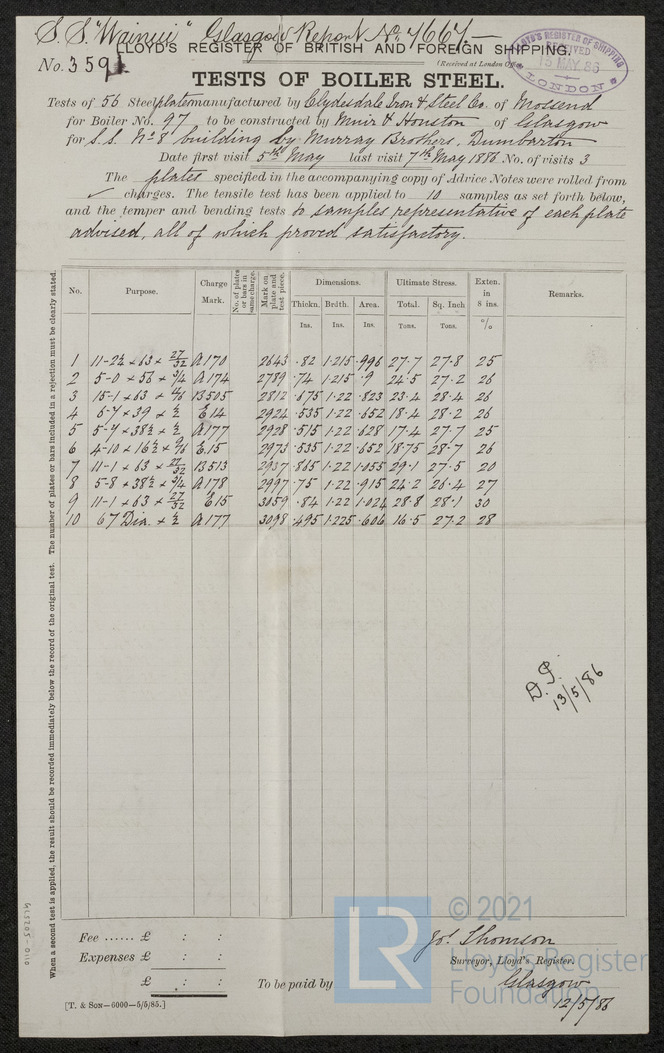 S.S. "Wainui" Glasgow Report No. 7667.—
LLOYD'S REGISTER OF BRITISH AND FOREIGN SHIPPING.
No. 3591
(Received at London Office
LLOYD'S REGISTER OF SHIPPING
RECEIVED
15 MAY. 86
LONDON
TESTS OF BOILER STEEL.
Tests of 56 Steel plates manufactured by Clydesdale Iron & Steel Co. of Mossend
for Boiler No. 97 to be constructed by Muir & Houston of Glasgow
for S.S. No 8 building by Murray Brothers, Dumbarton
Date first visit 5th May last visit 7th May 1886 No. of visits 3
The plates specified in the accompanying copy of Advice Notes were rolled from
✓ charges. The tensile test has been applied to 10 samples as set forth below,
and the temper and bending tests to samples representative of each plate
advised, all of which proved satisfactory.
No. Purpose. Charge Mark. No. of plates or bars in same charge. Mark on plate and test piece. Dimensions. Ultimate Stress. Exten. in 8 ins. Remarks.
Thickn. Brdth. Area. Total. Sq. Inch
Ins. Ins. Ins. Tons. Tons. %
1 11-2¼ × 63 × 27/32 A170 2643 .82 1.215 .996 27.7 27.8 25
2 5-0 × 56 × 3/4 A174 2789 .74 1.215 .9 24.5 27.2 26
3 15-1 × 63 × 11/16 B505 2812 .675 1.22 .823 23.4 28.4 26
4 6-7 × 39 × ½ E14 2924 .535 1.22 .652 18.4 28.2 26
5 5-9 × 38½ × ½ A177 2928 .515 1.22 .628 17.4 27.7 25
6 4-10 × 16½ × 9/16 E15 2973 .535 1.22 .652 18.75 28.7 26
7 11-1 × 63 × 27/32 B513 2937 .865 1.22 1.055 29.1 27.5 20
8 5-8 × 38½ × 3/4 A178 2997 .75 1.22 .915 24.2 26.4 27
9 11-1 × 63 × 27/32 E15 3059 .84 1.22 1.024 28.8 28.1 30
10 67 Dia. × ½ A177 3098 .495 1.225 .606 16.5 27.2 28
13/5/86
When a second test is applied, the result should be recorded immediately below the record of the original test. The number of plates or bars included in a rejection must be clearly stated.
Fee ...... £ : :
Expenses £ : :
£ : :
To be paid by
Jos. Thomson
Surveyor, Lloyd's Register.
Glasgow
12/5/86
[T. & SON—6000—5/5/85.]
LR
© 2021
Lloyd's Register
Foundation